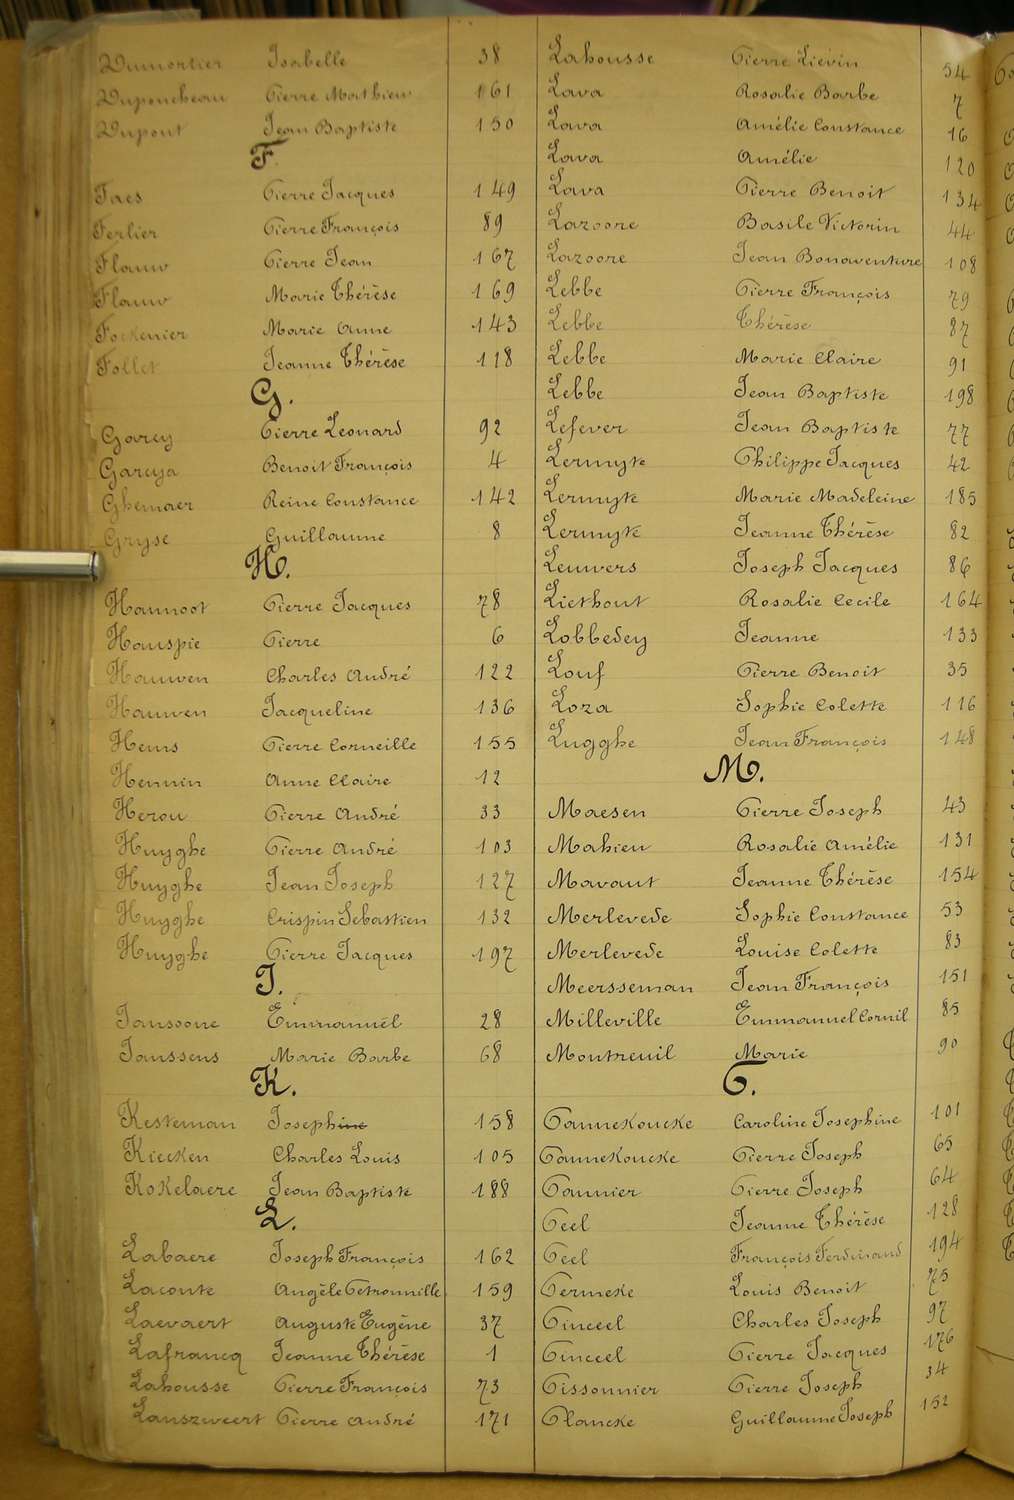 Dumortier Isabelle 38
Duponcheau Pierre Mathieu 161
Dupont Jean Baptiste 150
F.
Faes Pierre Jacques 149
Ferlier Pierre François 89
Flauw Pierre Jean 167
Flauw Marie Thérèse 169
Fockenier Marie Anne 143
Follet Jeanne Thérèse 118
G.
Garcy Pierre Leonard 92
Garcya Benoit François 4
Ghemaer Reine Constance 142
Gryse Guillaume 8
H.
Hannoot Pierre Jacques 78
Hauspie Pierre 6
Hauwen Charles André 122
Hauwen Jacqueline 136
Heus Pierre Corneille 155
Hennin Anne Claire 12
Herou Pierre André 33
Huyghe Pierre André 103
Huyghe Jean Joseph 127
Huyghe Crispin Sebastien 132
Huyghe Pierre Jacques 197
J.
Jansoone Emmanuël 28
Janssens Marie Barbe 68
K.
Kesteman Josephine 158
Kiecken Charles Louis 105
Kokelaere Jean Baptiste 188
L.
Labaere Joseph François 162
Laconte Angèle Pétronnille 159
Laevaert Auguste Eugène 37
Lafrancq Jeanne Thérèse 1
Lahousse Pierre François 73
Lanszweert Pierre André 171
Lahousse Pierre Liévin 54
Lava Rosalie Barbe 7
Lava Amélie Constance 16
Lava Amélie 120
Lava Pierre Benoit 134
Lazoore Basile Victorin 44
Lazoore Jean Bonaventure 108
Lebbe Pierre François 79
Lebbe Thérèse 87
Lebbe Marie Claire 91
Lebbe Jean Baptiste 198
Lefever Jean Baptiste 77
Lermyte Philippe Jacques 42
Lermyte Marie Madeleine 185
Lermyte Jeanne Thérèse 82
Leuwers Joseph Jacques 86
Liethout Rosalie Cecile 164
Lobbedey Jeanne 133
Louf Pierre Benoit 35
Loza Sophie Colette 116
Lugghe Jean François 148
M.
Maesen Pierre Joseph 43
Mahieu Rosalie Amélie 131
Mavaut Jeanne Thérèse 154
Merlevede Sophie Constance 53
Merlevede Louise Colette 83
Meersseman Jean François 151
Milleville Emmanuel Cornil 85
Montreuil Marie 90
P.
Pannekoucke Caroline Josephine 101
Pannekoucke Pierre Joseph 65
Pannier Pierre Joseph 64
Peel Jeanne Thérèse 128
Peel François Ferdinand 194
Permeke Louis Benoit 75
Pinceel Charles Joseph 97
Pinceel Pierre Jacques 176
Pissonnier Pierre Joseph 34
Plancke Guillaume Joseph 152